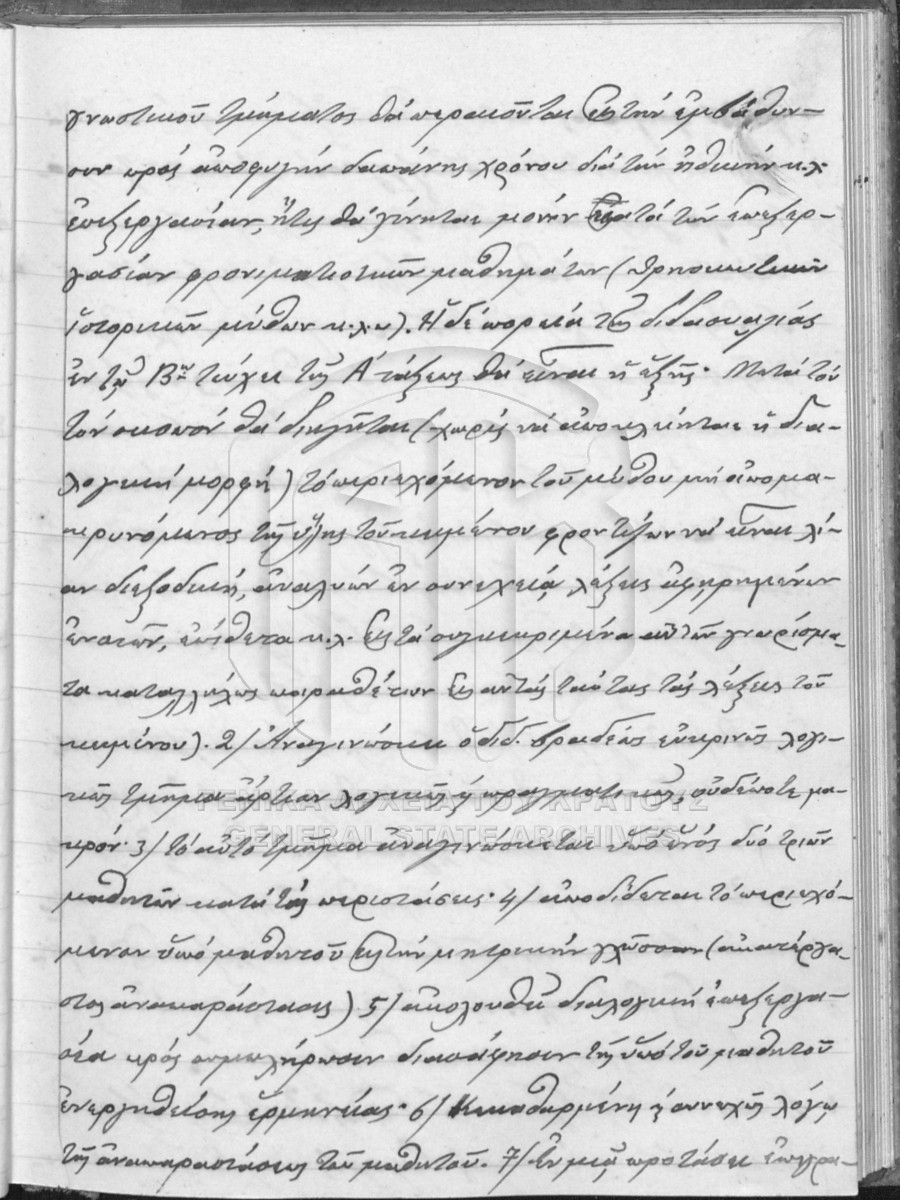 γνωστικοῦ τμήματος θά περατοῦται εἰς τήν ἐμβάθυν-
σιν πρός ἀποφυγήν δαπάνης χρόνου διά τήν ἠθικήν κ.λ.
ἐπεξεργασίαν, ἥτις θά γίνηται μόνον κατά τήν ἐπεξερ-
γασίαν φρονιματιστικῶν μαθημάτων (θρησκευτικῶν
ἱστορικῶν μύθων κ.λ.π). Ἡ δέ πορεία τῆς διδασκαλίας
ἐν τῷ Βῳ τεύχει τῆς Α΄ τάξεως θά εἶναι ἡ ἑξῆς· Μετά τόν
τόν σκοπόν θά διηγῆται (χωρίς νά ἀποκλείηται ἡ δια-
λογική μορφή) τό περιεχόμενον τοῦ μύθου μή ἀπομα-
κρυνόμενος τῆς ὕλης τοῦ κειμένου φροντίζων νά εἶναι λί-
αν διεξοδική, ἀναλύων ἐν συνεχείᾳ λέξεις ἀφηρημένων
ἐννοιῶν, ἐπίθετα κ.λ. εἰς τά συγκεκριμένα αὐτῶν γνωρίσμα-
τα καταλλήλως παραθέτων εἰς αὐτάς ταύτας τάς λέξεις τοῦ
κειμένου). 2/ Ἀναγινώσκει ὁ διδ. βραδέως εὐκρινῶς λογι-
κῶς τμῆμα ἄρτιον λογικῶς ἤ πραγματικῶς, οὐδέποτε μα-
κρόν· 3/ τό αὐτό τμῆμα ἀναγινώσκεται ὑπό ἑνός δύο τριῶν
μαθητῶν κατά τάς περιστάσεις· 4/ ἀποδίδεται τό περιεχό-
μενον ὑπό μαθητοῦ εἰς τήν μητρικήν γλῶσσαν (ἀκατέργα-
στος ἀναπαράστασις) 5/ ἀκολουθεῖ διαλογική ἐπεξεργα-
σία πρός συμπλήρωσιν διασάφησιν τῆς ὑπό τοῦ μαθητοῦ
ἐνεργηθείσης ἑρμηνείας· 6/ Κεκαθαρμένη ἡ συνεχῶς λόγῳ
τῆς ἀναπαραστάσεως τοῦ μαθητοῦ. 7/ Ἐν μιᾷ προτάσει ἐπιγρα-
ΓΕΝΙΚΑ ΑΡΧΕΙΑ ΤΟΥ ΚΡΑΤΟΥΣ
GENERAL STATE ARCHIVES